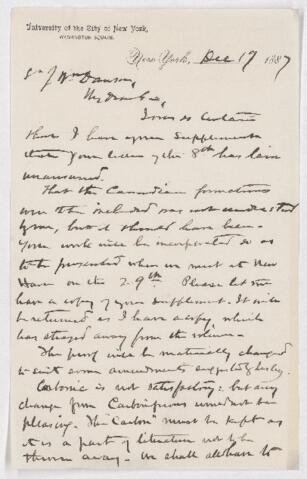 University of the City of New York,
WASHINGTON SQUARE.
New York, Dec 17 1887
Sir J Wm Dawson,
My dear Sir,
I was so certain
that I have your Supplement
that your letter of the 8th has lain
unanswered.
That the Canadian formations
were included was not understood
but it should have been.
Your work will be incorporated so as
to be presented when we meet at New
Haven on the 29th. Please let me
have a copy of your supplement. It will
be returned as I have a copy which
has strayed away from the
The proof will be materially changed
to suit some amendments suggested by
Carbonic is not satisfactory: but any
change from Carboniferous would not be
pleasing. The "Carbon" must be kept as
it is a part of literature not to be
thrown away. We shall all have to